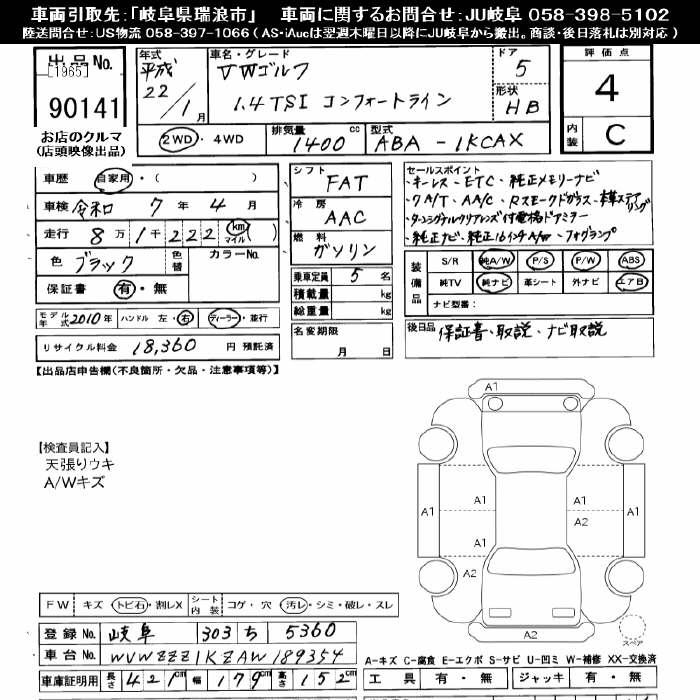 車両引取先:「岐阜県瑞浪市」 車両に関するお問合せ:JU岐阜 058-398-5102
陸送問合せ:US物流 058-397-1066 ( AS・iAucは翌週木曜日以降にJU岐阜から搬出。商談・後日落札は別対応 )
出品No.
[1965]
90141
お店のクルマ
(店頭映像出品)
年式
平成
22/1月
車名・グレード
VWゴルフ
1.4TSI コンフォートライン
ドア
5
形状
HB
2WD・4WD
排気量
1400cc
型式
ABA - 1KCAX
評価点
4
内装
C
車歴 自家用・( )
車検 令和 7年 4月
走行 8万1千222 (km マイル)
色 ブラック 色替 カラーNo.
保証書 有・無
モデル年式 2010年 ハンドル 左・右 ディーラー・並行
リサイクル料金 18,360 円 預託済
シフト FAT
冷房 AAC
燃料 ガソリン
乗車定員 5名
積載量 kg
総重量 kg
名変期限
月 日
セールスポイント
・キーレス・ETC・純正メモリーナビ
・7A/T・AA/C・Rスモークドガラス・本革ステアリング
・ターンシグナルクリアレンズ付電格ドアミラー
・純正ナビ・純正16インチA/W・フォグランプ
装備品
S/R 純A/W P/S P/W ABS
純TV 純ナビ 革シート 外ナビ エアB
ナビ型番:
後日品 保証書・取説・ナビ取説
【出品店申告欄(不良箇所・欠品・注意事項等)】
【検査員記入】
天張りウキ
A/Wキズ
A1
A1
A1
A1
A1
A2
A1
A2
A2
スペア
FW キズ・トビ石・割レX シート内装 コゲ・穴・汚レ・シミ・破レ・スレ
登録No. 岐阜 303 ち 5360
車台No. WVWZZZ1KZAW189354
車庫証明用 長さ 421cm 幅 179cm 高さ 152cm
A-キズ C-腐食 E-エクボ S-サビ U-凹ミ W-補修 XX-交換済
工具 有・無 ジャッキ 有・無